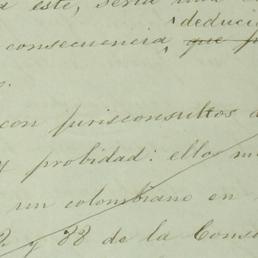 este, sería una
deduci
consecuencia, que
con jurisconsultos
y probidad: ello
un colombiano en
y 28 de la Cons